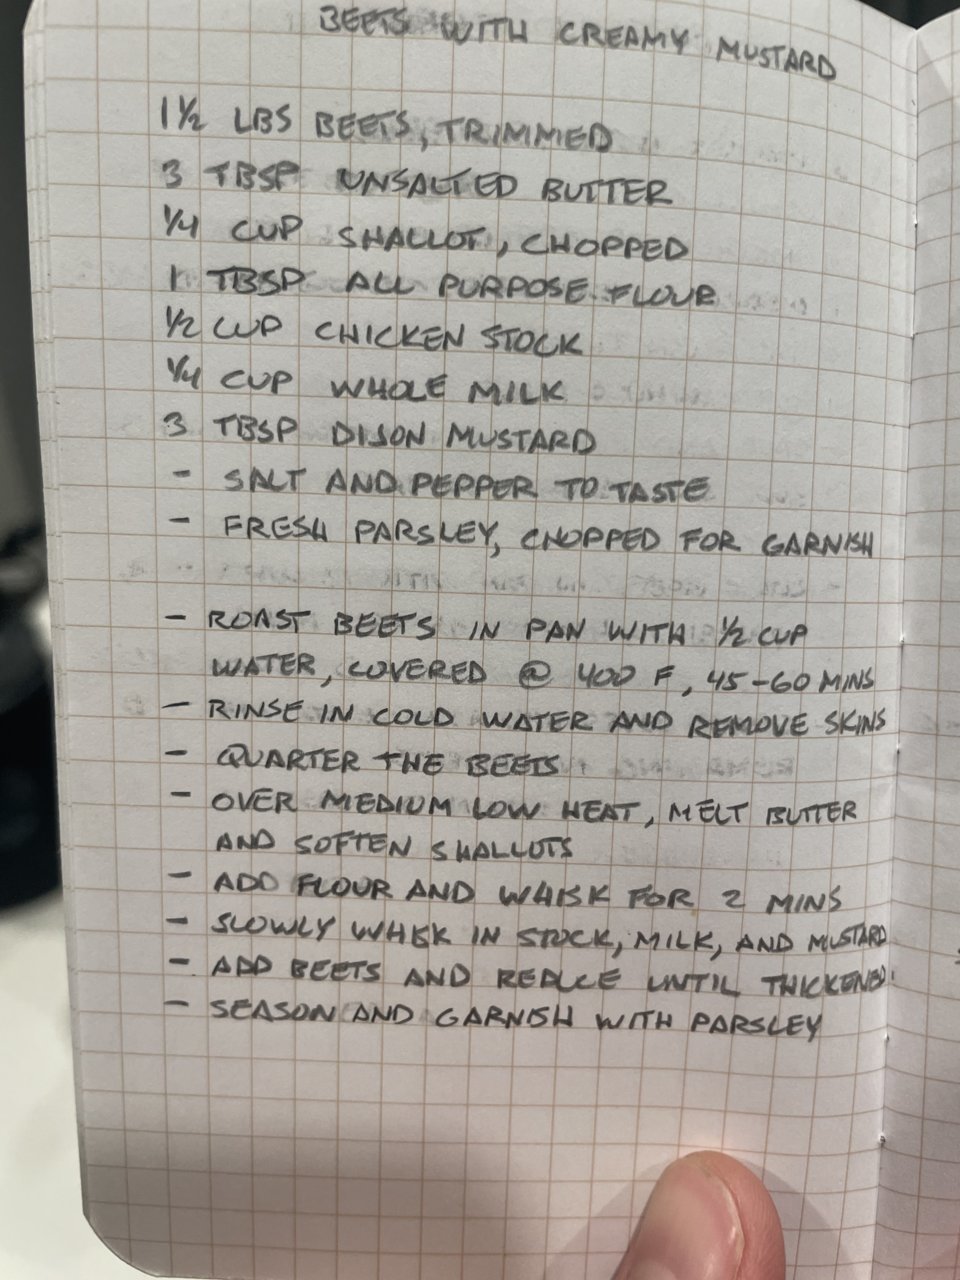 BEETS WITH CREAMY MUSTARD
1 1/2 LBS BEETS, TRIMMED
3 TBSP UNSALTED BUTTER
1/4 CUP SHALLOT, CHOPPED
1 TBSP ALL PURPOSE FLOUR
1/2 CUP CHICKEN STOCK
1/4 CUP WHOLE MILK
3 TBSP DIJON MUSTARD
- SALT AND PEPPER TO TASTE
- FRESH PARSLEY, CHOPPED FOR GARNISH
- ROAST BEETS IN PAN WITH 1/2 CUP
WATER, COVERED @ 400 F, 45-60 MINS
- RINSE IN COLD WATER AND REMOVE SKINS
- QUARTER THE BEETS
- OVER MEDIUM LOW HEAT, MELT BUTTER
AND SOFTEN SHALLOTS
- ADD FLOUR AND WHISK FOR 2 MINS
- SLOWLY WHISK IN STOCK, MILK, AND MUSTARD
- ADD BEETS AND REDUCE UNTIL THICKENED
- SEASON AND GARNISH WITH PARSLEY